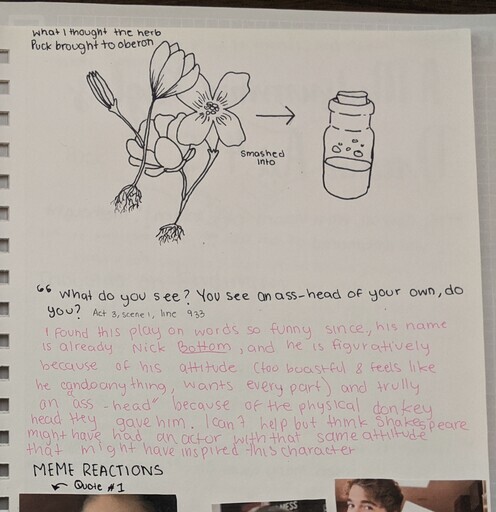 What I thought the herb
Puck brought to oberon
Smashed
into
"What do you see? You see an ass-head of your own, do
you? Act 3, scene 1, line 933
I found this play on words so funny since, his name
is already Nick Bottom, and he is figuratively
because of his attitude (too boastful & feels like
he cando anything, wants every part) and trully
an ass-head" because of the physical donkey
head they gave him. I can't help but think Shakespeare
might have had an actor with that same attitude
that might have inspired this character
MEME REACTIONS
Quote #1